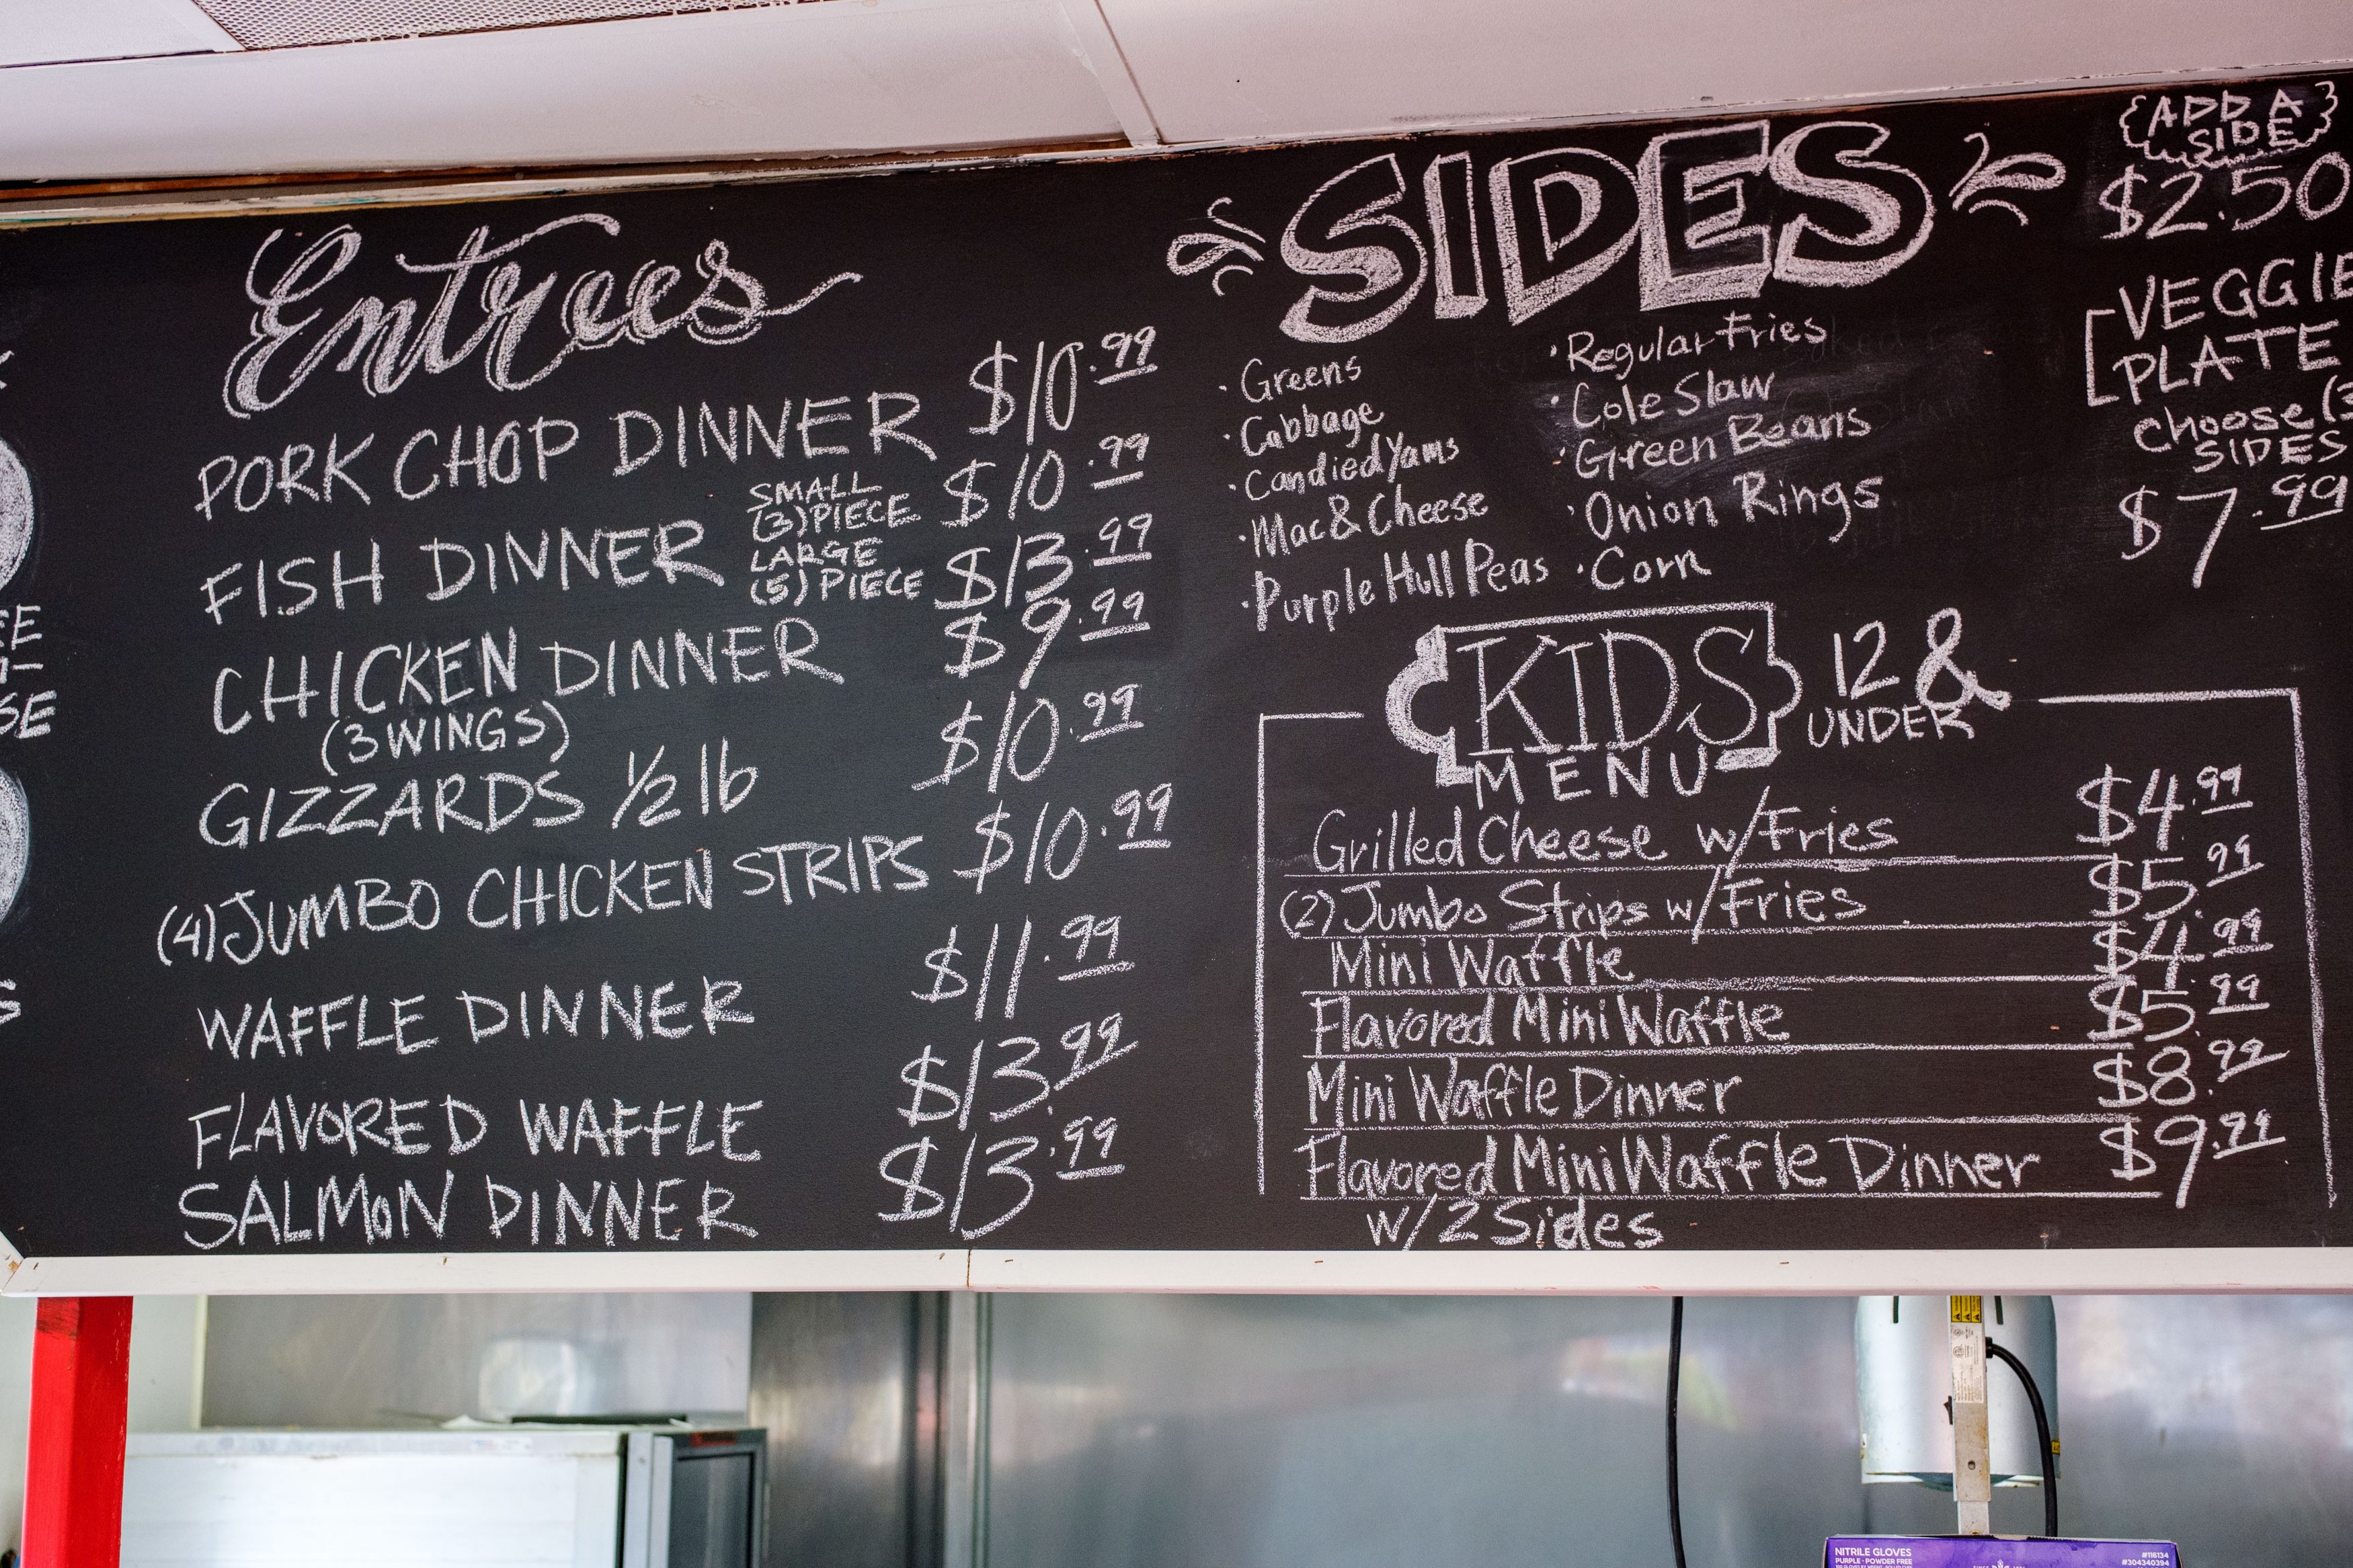 Entrees
PORK CHOP DINNER $10.99
FISH DINNER SMALL (3) PIECE $10.99
LARGE (5) PIECE $13.99
CHICKEN DINNER $9.99
(3 WINGS)
GIZZARDS 1/2 lb $10.99
(4) JUMBO CHICKEN STRIPS $10.99
WAFFLE DINNER $11.99
FLAVORED WAFFLE $13.99
SALMON DINNER $13.99
SIDES
· Greens
· Cabbage
· Candied Yams
· Mac & Cheese
· Purple Hull Peas
· Regular Fries
· Cole Slaw
· Green Beans
· Onion Rings
· Corn
ADD A
SIDE
$2.50
VEGGIE
PLATE
choose (3
SIDES
$7.99
KIDS 12 &
UNDER
MENU
Grilled Cheese w/Fries $4.99
(2) Jumbo Strips w/Fries $5.99
Mini Waffle $4.99
Flavored Mini Waffle $5.99
Mini Waffle Dinner $8.99
Flavored Mini Waffle Dinner $9.99
w/2 Sides
NITRILE GLOVES
PURPLE · POWDER FREE
#116134
#304340394